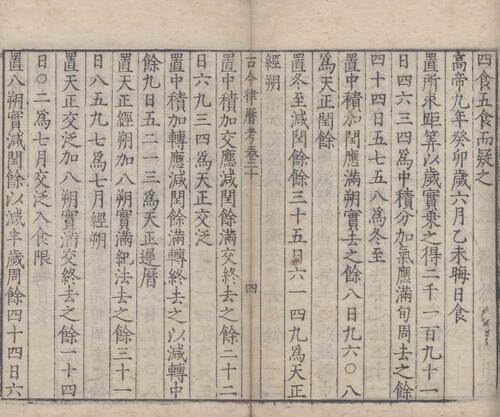 四食五食而疑之
高帝九年癸卯歲六月乙未晦日食
置所求距筭以歲實乘之得二千一百九十一
日四六三四爲中積分加氣應滿旬周去之餘
四十四日五七五八爲冬至
置中積加閏應滿朔實去之餘八日九六〇八
爲天正閏餘
置冬至減閏餘餘三十五日六一四九爲天正
經朔
古今律曆考卷三十 四
置中積加交應減閏餘滿交終去之餘二十二
日六九三四爲天正交泛
置中積加轉應減閏餘滿轉終去之以減轉中
餘九日五二一三爲天正遲曆
置天正經朔加八朔實滿紀法去之餘三十一
日八五九七爲七月經朔
置天正交泛加八朔實滿交終去之餘一十四
日〇二爲七月交泛入食限
置八朔實減閏餘以減半歲周餘四十四日六